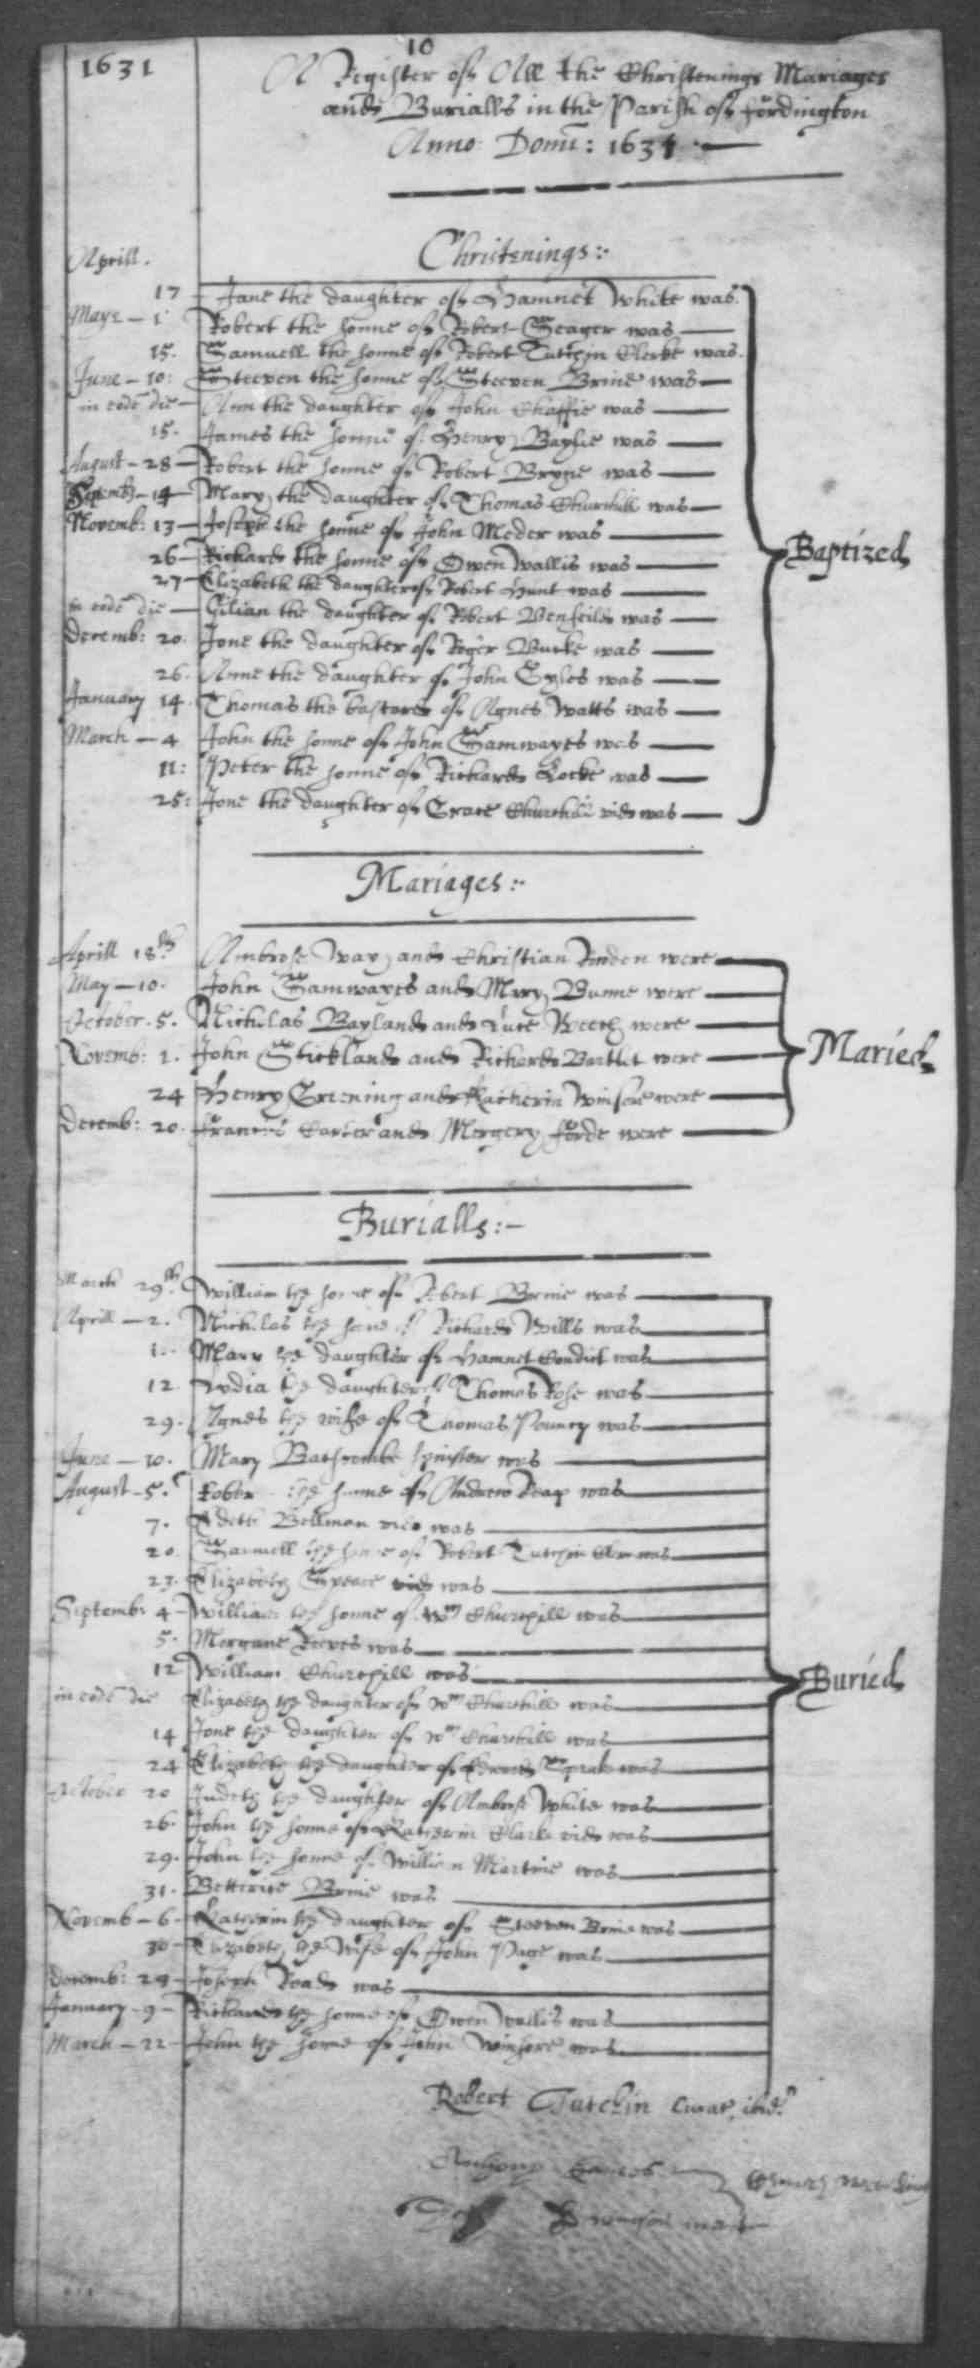 10
1631
A Register of All the Christenings Mariages
and Burialls in the Parish of fordington
Anno Domi: 1631
Christenings:
Aprill.
17 Jane the daughter of Hamnet White was
Maye - 1 Robert the sonne of Robert Seager was
15. Samuell the sonne of Robert Tutchin Clerke was.
June - 10: Steeven the sonne of Steeven Brine was
in eode die - Ann the daughter of John Chaffie was
15. James the sonne of Henry Baylie was
August - 28 - Robert the sonne of Robert Bryne was
Septemb - 14 - Mary the daughter of Thomas Churchill was
Novemb: 13 - Joseph the sonne of John Meder was
26 - Richard the sonne of Owen Wallis was
27 - Elizabeth the daughter of Robert Hunt was
in eode die - Gilian the daughter of Robert was
Decemb: 20. Jone the daughter of Roger Burke was
26. Anne the daughter of John Gyles was
January 14 Thomas the bastard of Agnes Watts was
March - 4 John the sonne of John Samwayes was
11: Peter the sonne of Richard Locke was
25: Jone the daughter of Grace Churchill vid was
Baptized
Mariages:
Aprill 18th Ambrose Way and Christian were
May - 10. John Samwayes and Mary Bunne were
October. 5. Nicholas Bayland and Luce Beech were
Novemb: 1. John Stickland and Richord Bartlet were
24 Henry Greening and Katherin Winsore were
Decemb: 20. francis Carter and Mergery forde were
Maried
Burialls:-
March 29th William the sonne of Robert Brine was
Aprill - 2. Nicholas the sonne of Richard Wills was
Mary the daughter of Hamnet Condict was
12 Lydia the daughter of Thomas Rose was
29. Agnes the wife of Thomas Pouncy was
June - 10. Mary Bascombe spinster was
August - 5. Robert the sonne of Andrew was
7. Bellman vid was
20 Samuell the sonne of Robert Tutchin Cler was
23. Elizabeth Speare vid was
Septemb: 4 - William the sonne of Wm Churchill was
5. Morgane Reeves was
12 William Churchill was
in eode die Elizabeth the daughter of Wm Churchill was
14 Jone the daughter of Wm Churchill was
24 Elizabeth the daughter of Edward was
October 20 Judeth the daughter of Ambrose White was
26. John the sonne of Katherin Clarke vid was
29. John the sonne of William Martine was
31. Brine was
Novemb - 6 - Katherin the daughter of Steeven Brine was
30 - Elizabeth the Wife of John Page was
Decemb: 29 - Joseph Roads was
January - 9 - Richard the sonne of Owen Wallis was
March - 22 - John the sonne of John Winsore was
Buried
Robert Tutchin Curat ibid